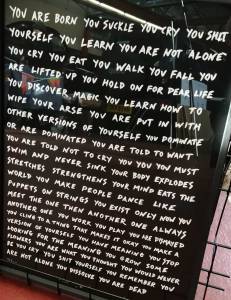 YOU ARE BORN YOU SUCKLE YOU CRY YOU SHIT
YOURSELF YOU LEARN YOU ARE NOT ALONE
YOU CRY YOU EAT YOU WALK YOU FALL YOU
ARE LIFTED UP YOU HOLD ON FOR DEAR LIFE
YOU DISCOVER MAGIC YOU LEARN HOW TO
WIPE YOUR ARSE YOU ARE PUT IN WITH
OTHER VERSIONS OF YOURSELF YOU DOMINATE
OR ARE DOMINATED YOU ARE TOLD TO WANT
YOU ARE TOLD NOT TO CRY YOU YOU MUST
SWIM AND NEVER SINK YOUR BODY EXPLODES
STRETCHES STRENGTHENS YOUR MIND EATS THE
WORLD YOU MAKE PEOPLE DANCE LIKE
PUPPETS ON STRINGS YOU EXIST ONLY NOW YOU
MEET THE ONE THEN ANOTHER ONE ALWAYS
ANOTHER ONE YOU WORK YOU PLAY YOU ARE DOOMED
YOU CLING TO A THING THAT MAKES IT OKAY YOU MAKE A
VERSION OF YOURSELF YOU HAVE MEANING YOU STOP
LOOKING FOR THE MEANING YOU GROW SOME
FLOWERS YOU ARE WHAT YOU THOUGHT YOU WOULD NEVER
BE YOU CRY YOU SHIT YOURSELF YOU REMEMBER YOU
ARE NOT ALONE YOU DISSOLVE YOU ARE DEAD